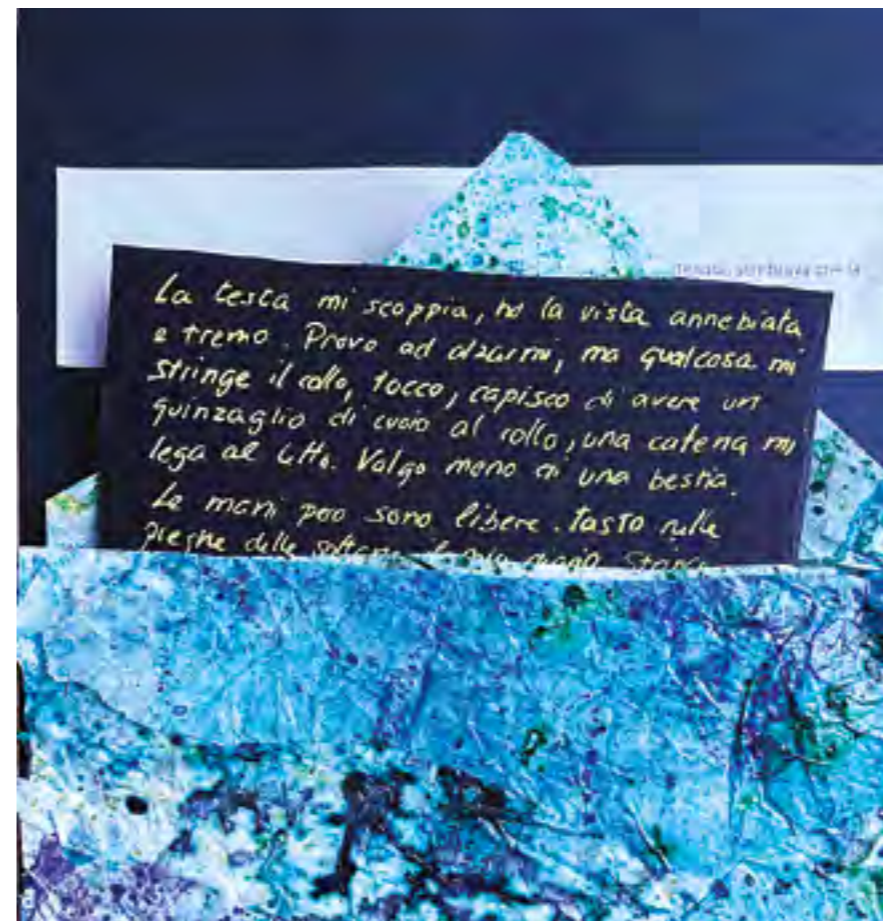 La testa mi scoppia, ho la vista annebiata
e tremo. Provo ad alzarmi, ma qualcosa mi
stringe il collo, tocco, capisco di avere un
guinzaglio di cuoio al collo, una catena mi
lega al letto. Valgo meno di una bestia.
Le mani però sono libere. tasto nelle
pieghe delle sottane il mio